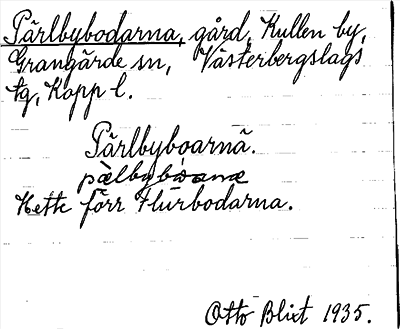 Pärlbybodarna, gård, Kullen by,
Grangärde sn, Västerbergslags
tg, Kopp l.
Pärlbyboarnä.
Hette förr Flurbodarna.
Otto Blixt 1935.